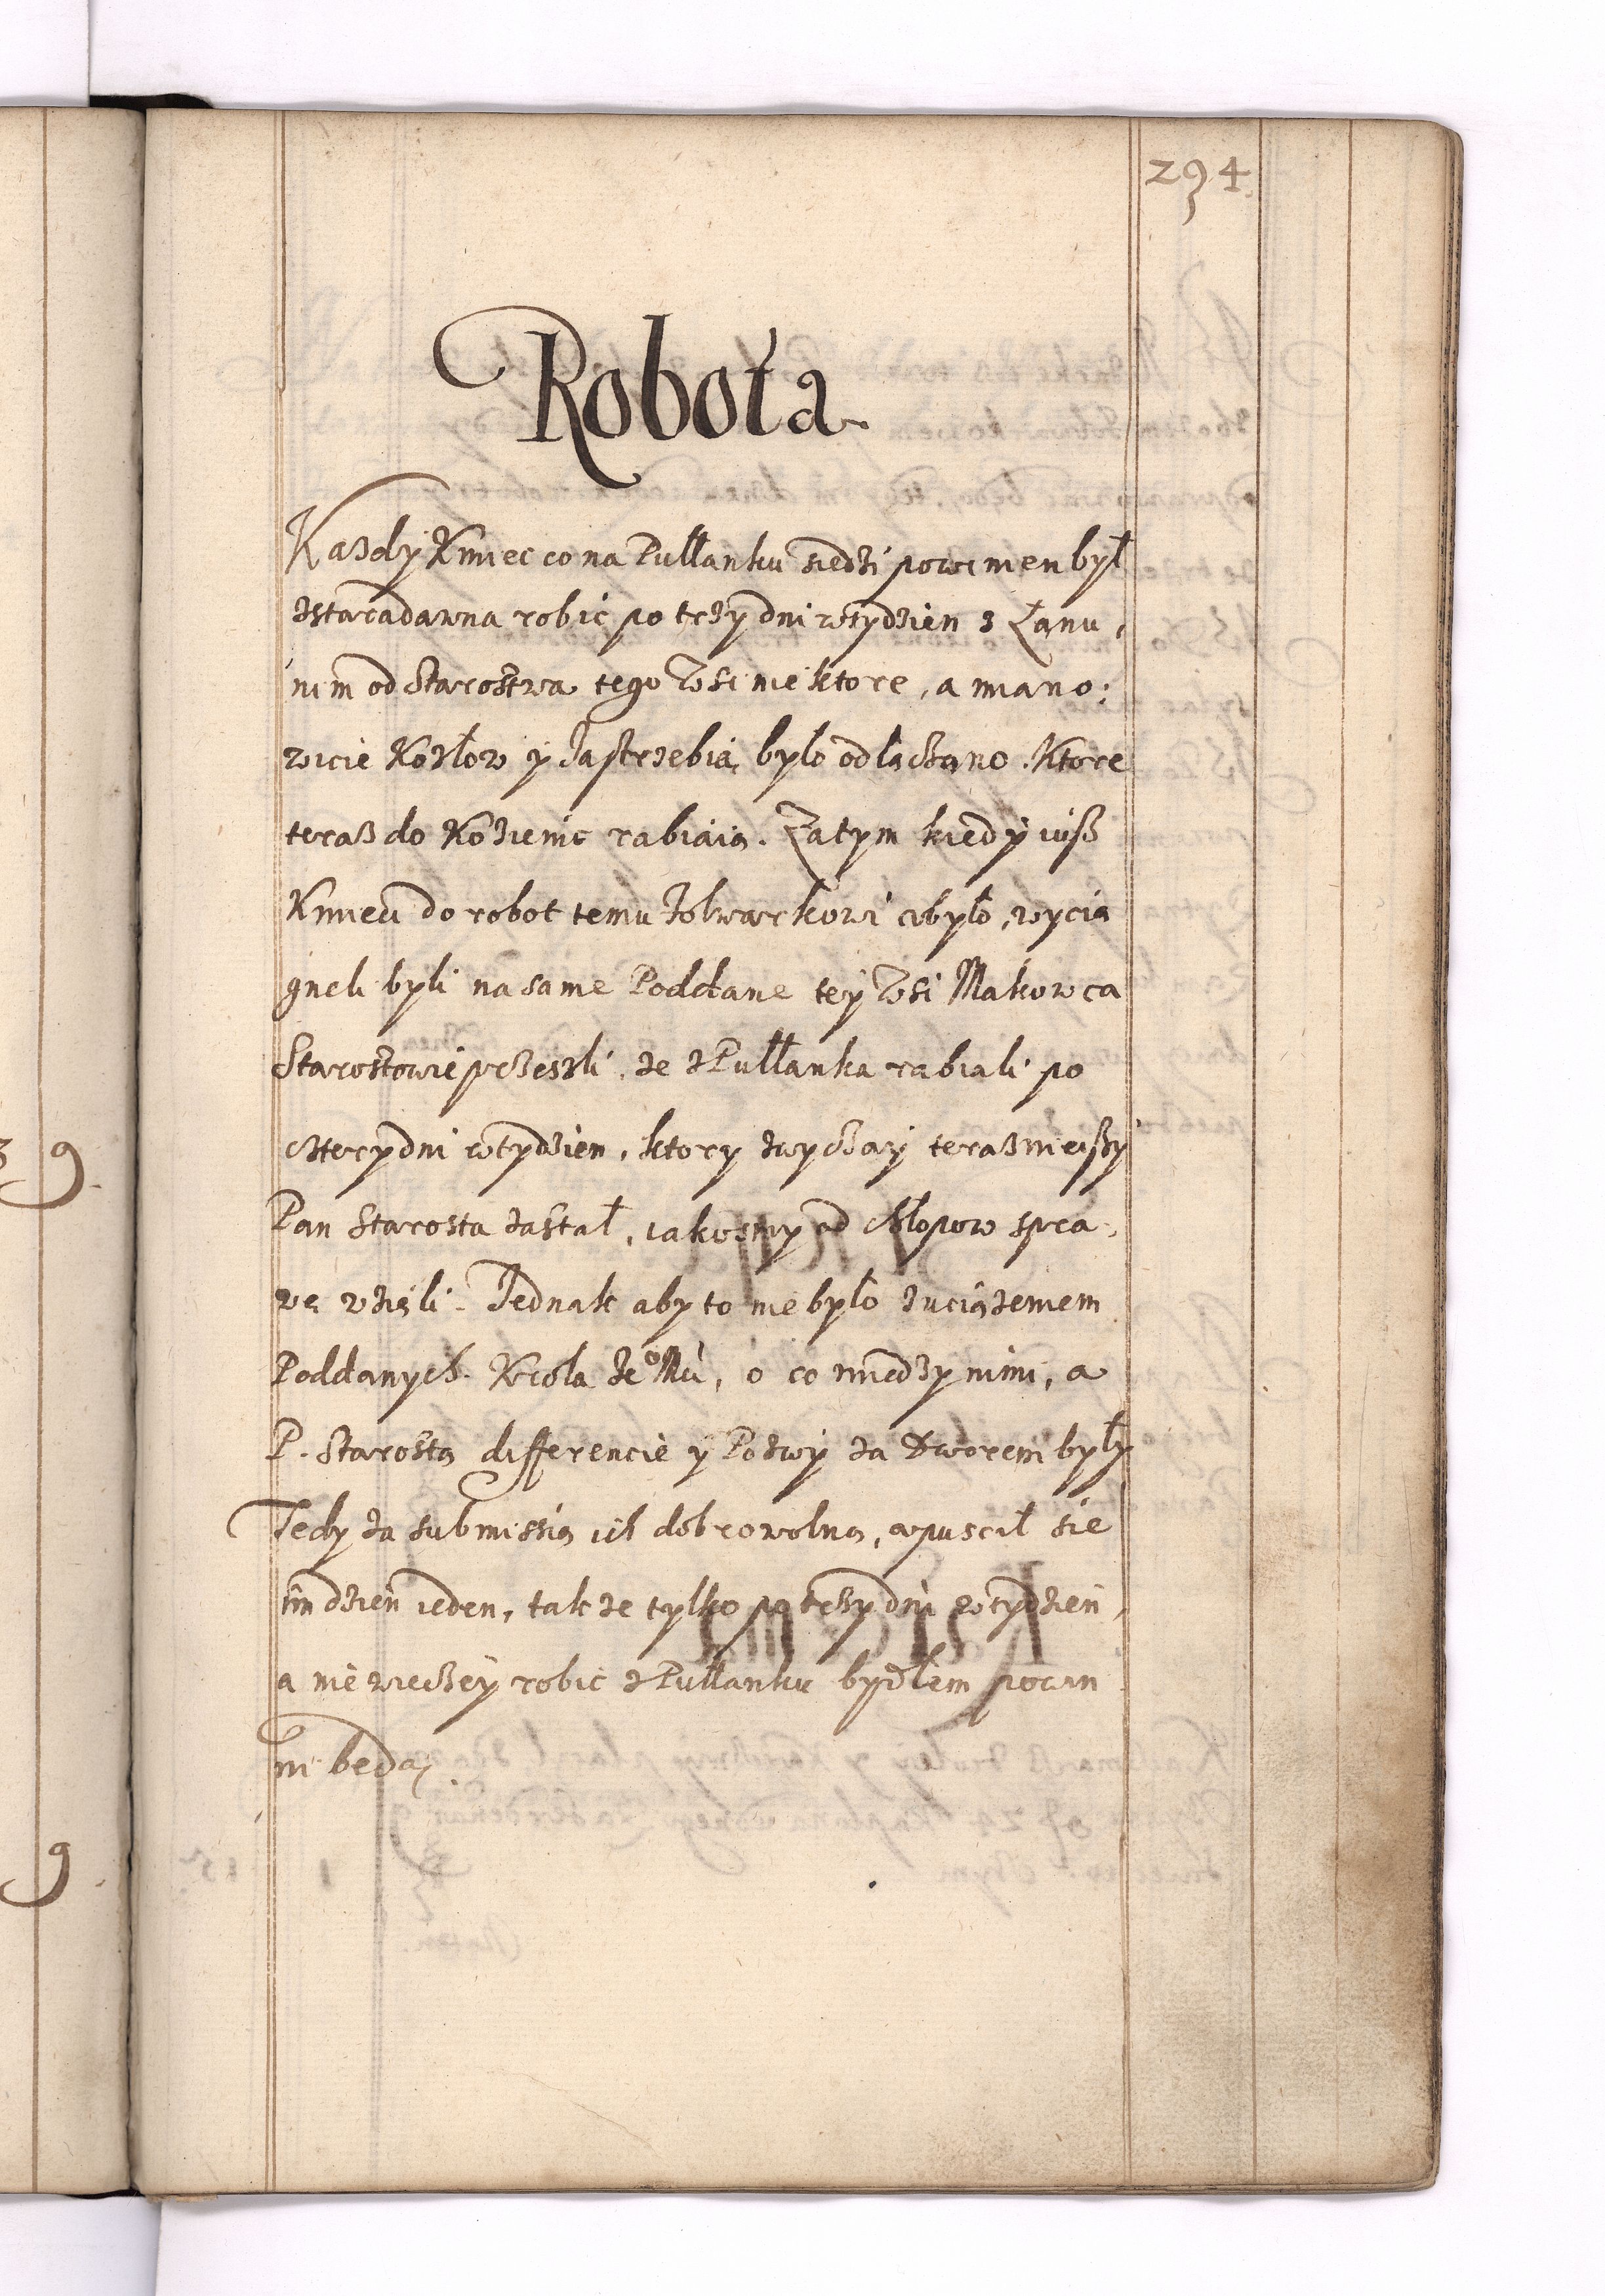 294
Robota
Kazdy Kmiec co na Pułłanku siedzi powinien był
zstaradawna robic po trzy dni wtydzien z Łanu,
nim od Starostwa tego Wsi niektore, a miano:
wicie Kozłow y Jastrzebia, było odłączono. Ktore
teraß do Kozienic rabiaią. Zatym kiedy iuß
Kmieci do robot temu Folwarkowi ubyło, wycią
gneli byli na same Poddane tey Wsi Makowca
Starostowie przeszli, ze z Pułłanka rabiali po
cztery dni wtydzien, ktory zwyczay teraßnieyßy
Pan Starosta zastał, iakosmy od chłopow spra-
wę wzięli. Jednak aby to nie było zuciązeniem
Poddanych Krola Je° Mci, o co miedzy nimi, a
P. Starostą differencie y Pozwy za Dworem były
Tedy za submissią ich dobrowolną, opuscił sie
im dzien ieden, tak ze tylko po trzy dni wtydzien,
a nie wieczey robic z Pułłanku bydłem powin
ni będą.
9
9